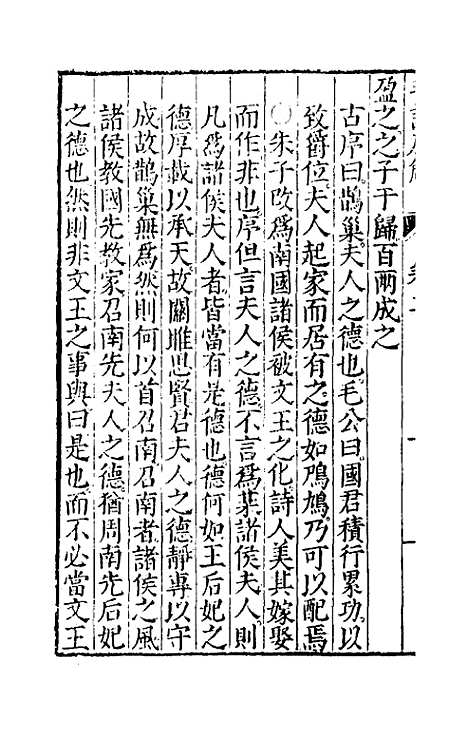 盈之之子于歸百兩成之
古序曰鵲巢夫人之德也毛公曰國君積行累功以
致爵位夫人起家而居有之德如鳲鳩乃可以配焉
○朱子改爲南國諸侯被文王之化詩人美其嫁娶
而作非也序但言夫人之德不言爲某諸侯夫人則
凡爲諸侯夫人者皆當有是德也德何如王后妃之
德厚載以承天故關雎思賢君夫人之德靜專以守
成故鵲巢無爲然則何以首召南召南者諸侯之風
諸侯教國先教家召南先夫人之德猶周南先后妃
之德也然則非文王之事與曰是也而不必當文王